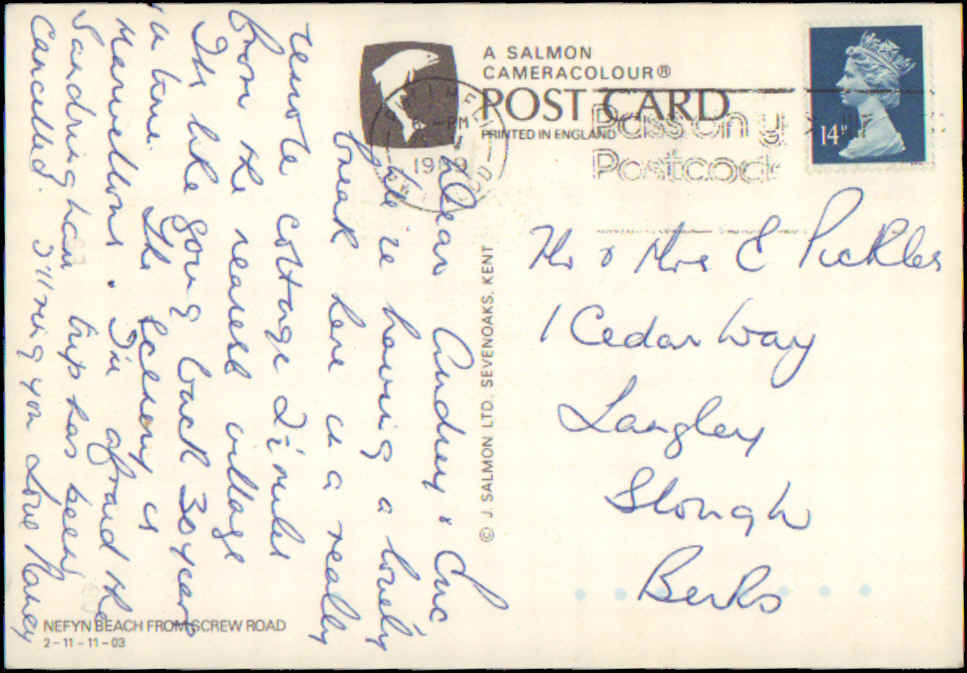 A SALMON
CAMERACOLOUR®
POST CARD
PRINTED IN ENGLAND
PM
1989
Pass on y
Postcod
14P
Dear Audrey & Eric
We're having a lovely
break here in a really
remote cottage 2½ miles
from the nearest village
It's like going back 30 years
in time. The scenery is
Marvellous. I'm afraid the
Sandringham trip has been
Cancelled. I'll ring you Love Nancy
© J. SALMON LTD. SEVENOAKS. KENT
Mr & Mrs E Pickles
1 Cedar Way
Langley
Slough
Berks
NEFYN BEACH FROM SCREW ROAD
2-11-11-03